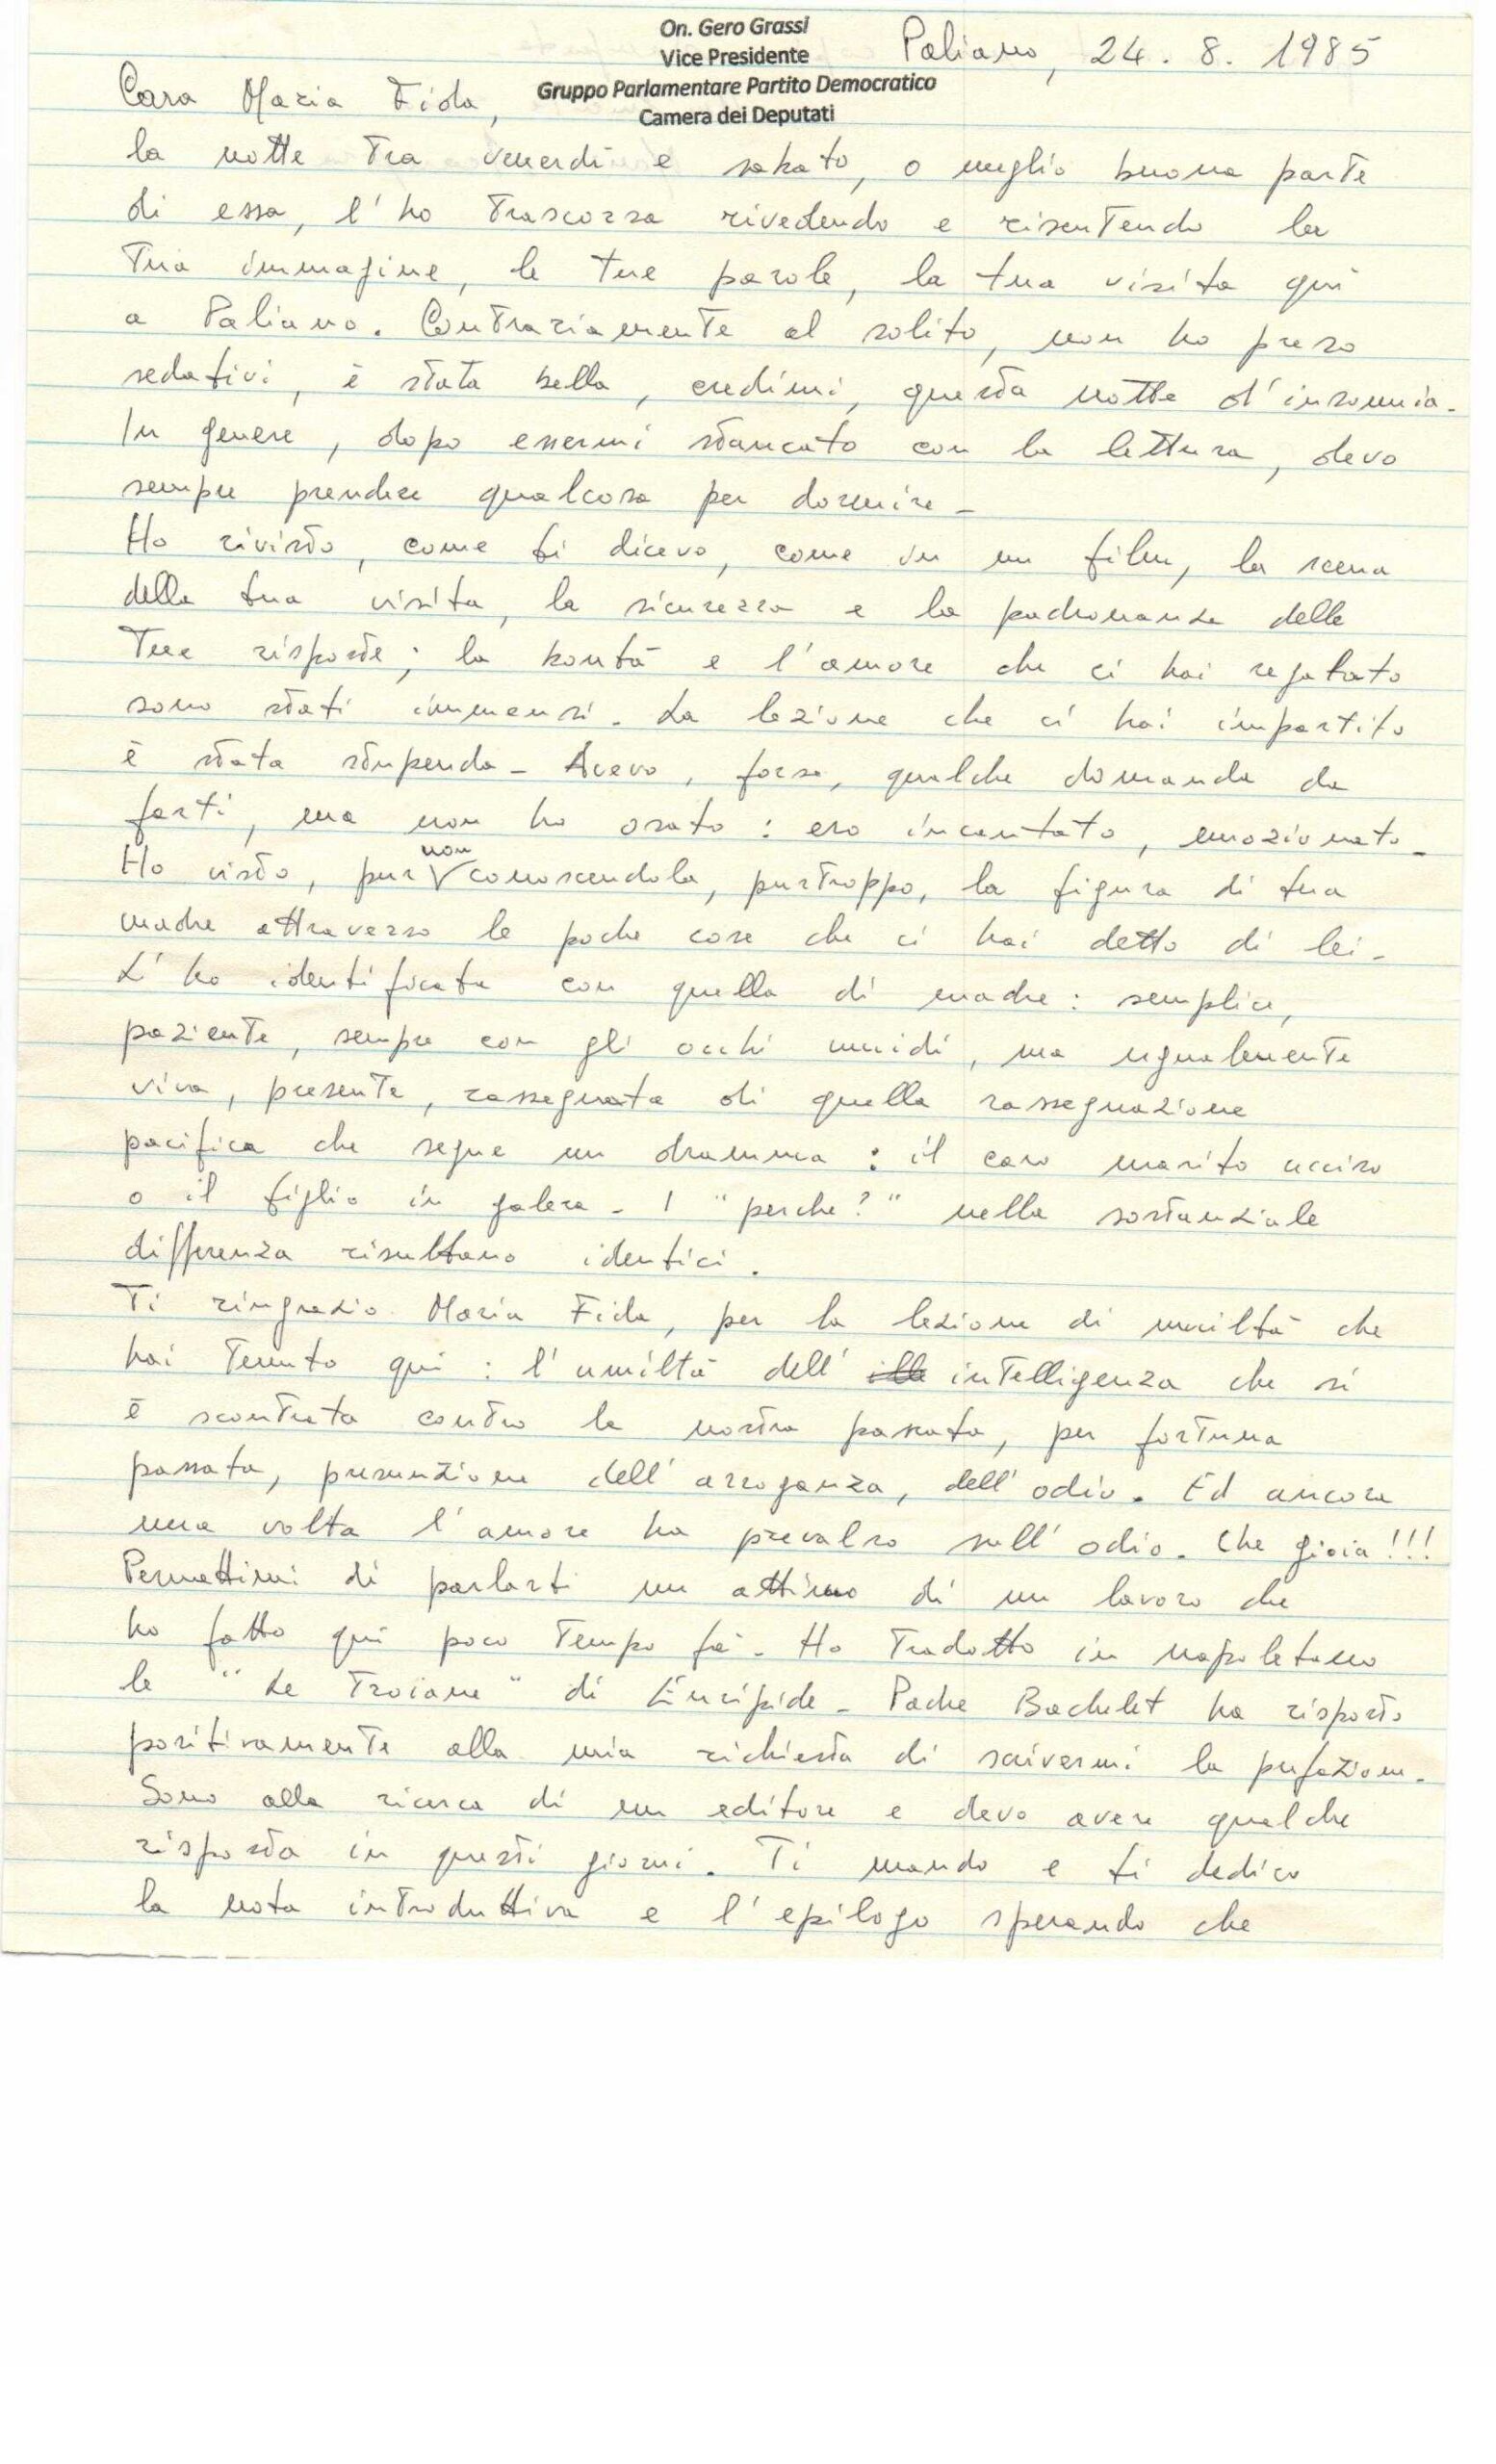 On. Gero Grassi
Vice Presidente
Gruppo Parlamentare Partito Democratico
Camera dei Deputati
Paliano, 24. 8. 1985
Cara Maria Fida,
la notte tra venerdì e sabato, o meglio buona parte
di essa, l'ho trascorsa rivedendo e risentendo la
tua immagine, le tue parole, la tua visita qui
a Paliano. Contrariamente al solito, non ho preso
sedativi, è stata bella, credimi, questa notte d'insonnia.
In genere, dopo essermi stancato con la lettura, devo
sempre prendere qualcosa per dormire -
Ho rivisto, come ti dicevo, come in un film, la scena
della tua visita, la sicurezza e la padronanza delle
Tue risposte; la bontà e l'amore che ci hai regalato
sono stati immensi. La lezione che ci hai impartito
è stata stupenda - Avevo, forse, qualche domanda da
farti, ma non ho osato: ero incantato, emozionato -
Ho visto, pur non conoscendola, purtroppo, la figura di tua
madre attraverso le poche cose che ci hai detto di lei -
L'ho identificata con quella di madre: semplice,
paziente, sempre con gli occhi umidi, ma ugualmente
viva, presente, rassegnata di quella rassegnazione
pacifica che segue un dramma: il caro marito ucciso
o il figlio in galera - I "perche?" nella sostanziale
differenza risultano identici.
Ti ringrazio Maria Fida, per la lezione di umiltà che
hai tenuto qui: l'umiltà dell' intelligenza che si
è scontrata contro la nostra passata, per fortuna
passata, presunzione dell'arroganza, dell'odio. Ed ancora
una volta l'amore ha prevalso sull'odio. Che gioia!!!
Permettimi di parlarti un attimo di un lavoro che
ho fatto qui poco tempo fà - Ho tradotto in napoletano
le "Le Troiane" di Euripide - Padre Bachelet ha risposto
positivamente alla mia richiesta di scrivermi la prefazione -
Sono alla ricerca di un editore e devo avere qualche
risposta in questi giorni. Ti mando e ti dedico
la nota introduttiva e l'epilogo sperando che